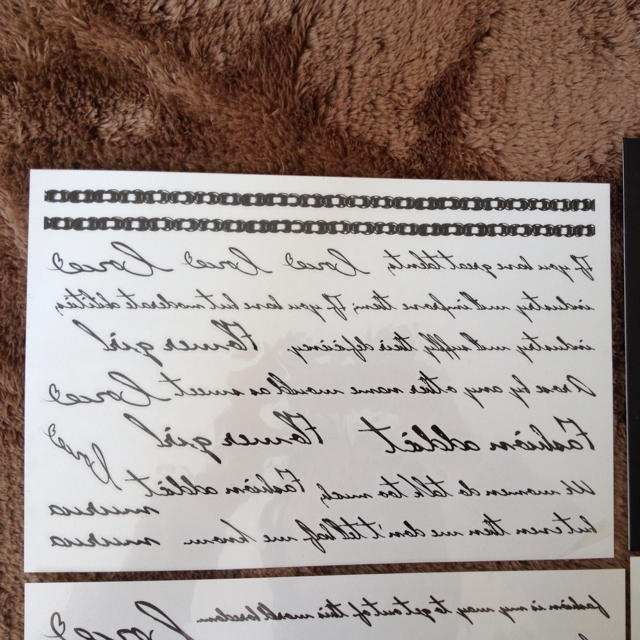 If you have great talents, Love Love Love
industry will improve them; If you have but moderate abilities,
industry will supply their deficiency. Flower girl
A rose by any other name would as sweet Love
Fashion addict Flower girl Love
We women do talk too much, Fashion addict
but even then we don't tell half we know.
fashion is my way to get out of this world boredom. Love